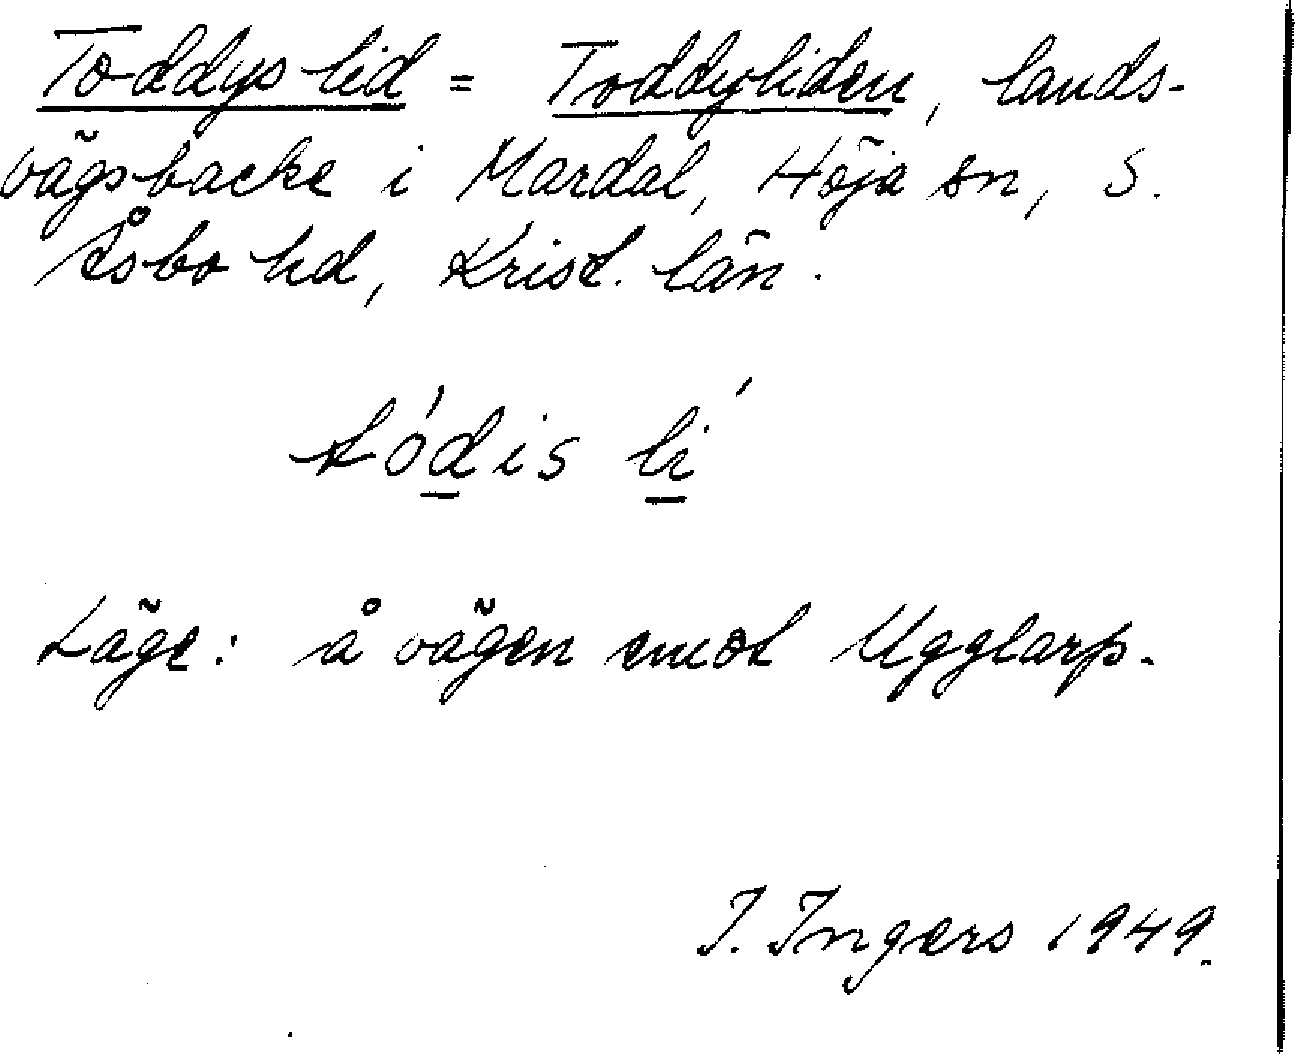 Toddys lid = Toddyliden, lands-
vägsbacke i Mardal, Höja sn, S.
Åsbo hd, Krist. län.
tódis li´
Läge: å vägen emot Ugglarp.
I. Ingers 1949.